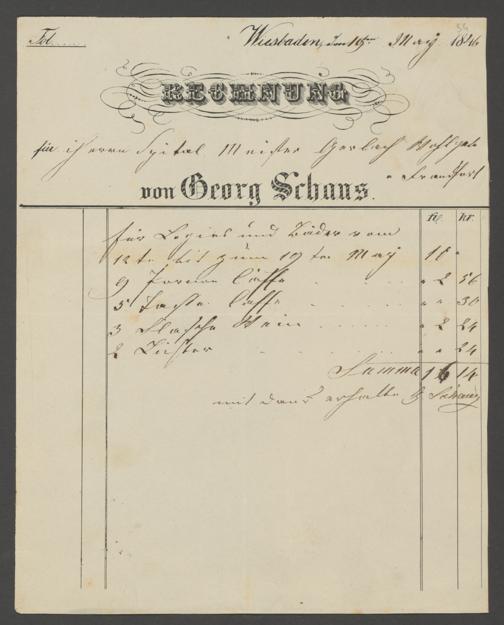 Fol.
Wiesbaden, den 19ten May 1846
RECHNUNG
für Herrn Spital Meister Gerlach Wohlgeb
a Frankfort
von Georg Schaus.
fl. kr.
für Logies und Bäder vom
12ten bis zum 19ten May 10 "
9 Portion Caffe " 2 56
5 Tasse Caffe " " 30
3 Flasche Wein " 2 24
2 Lichter " " 24
Summa 16 14
mit Dank erhalten G Schaus